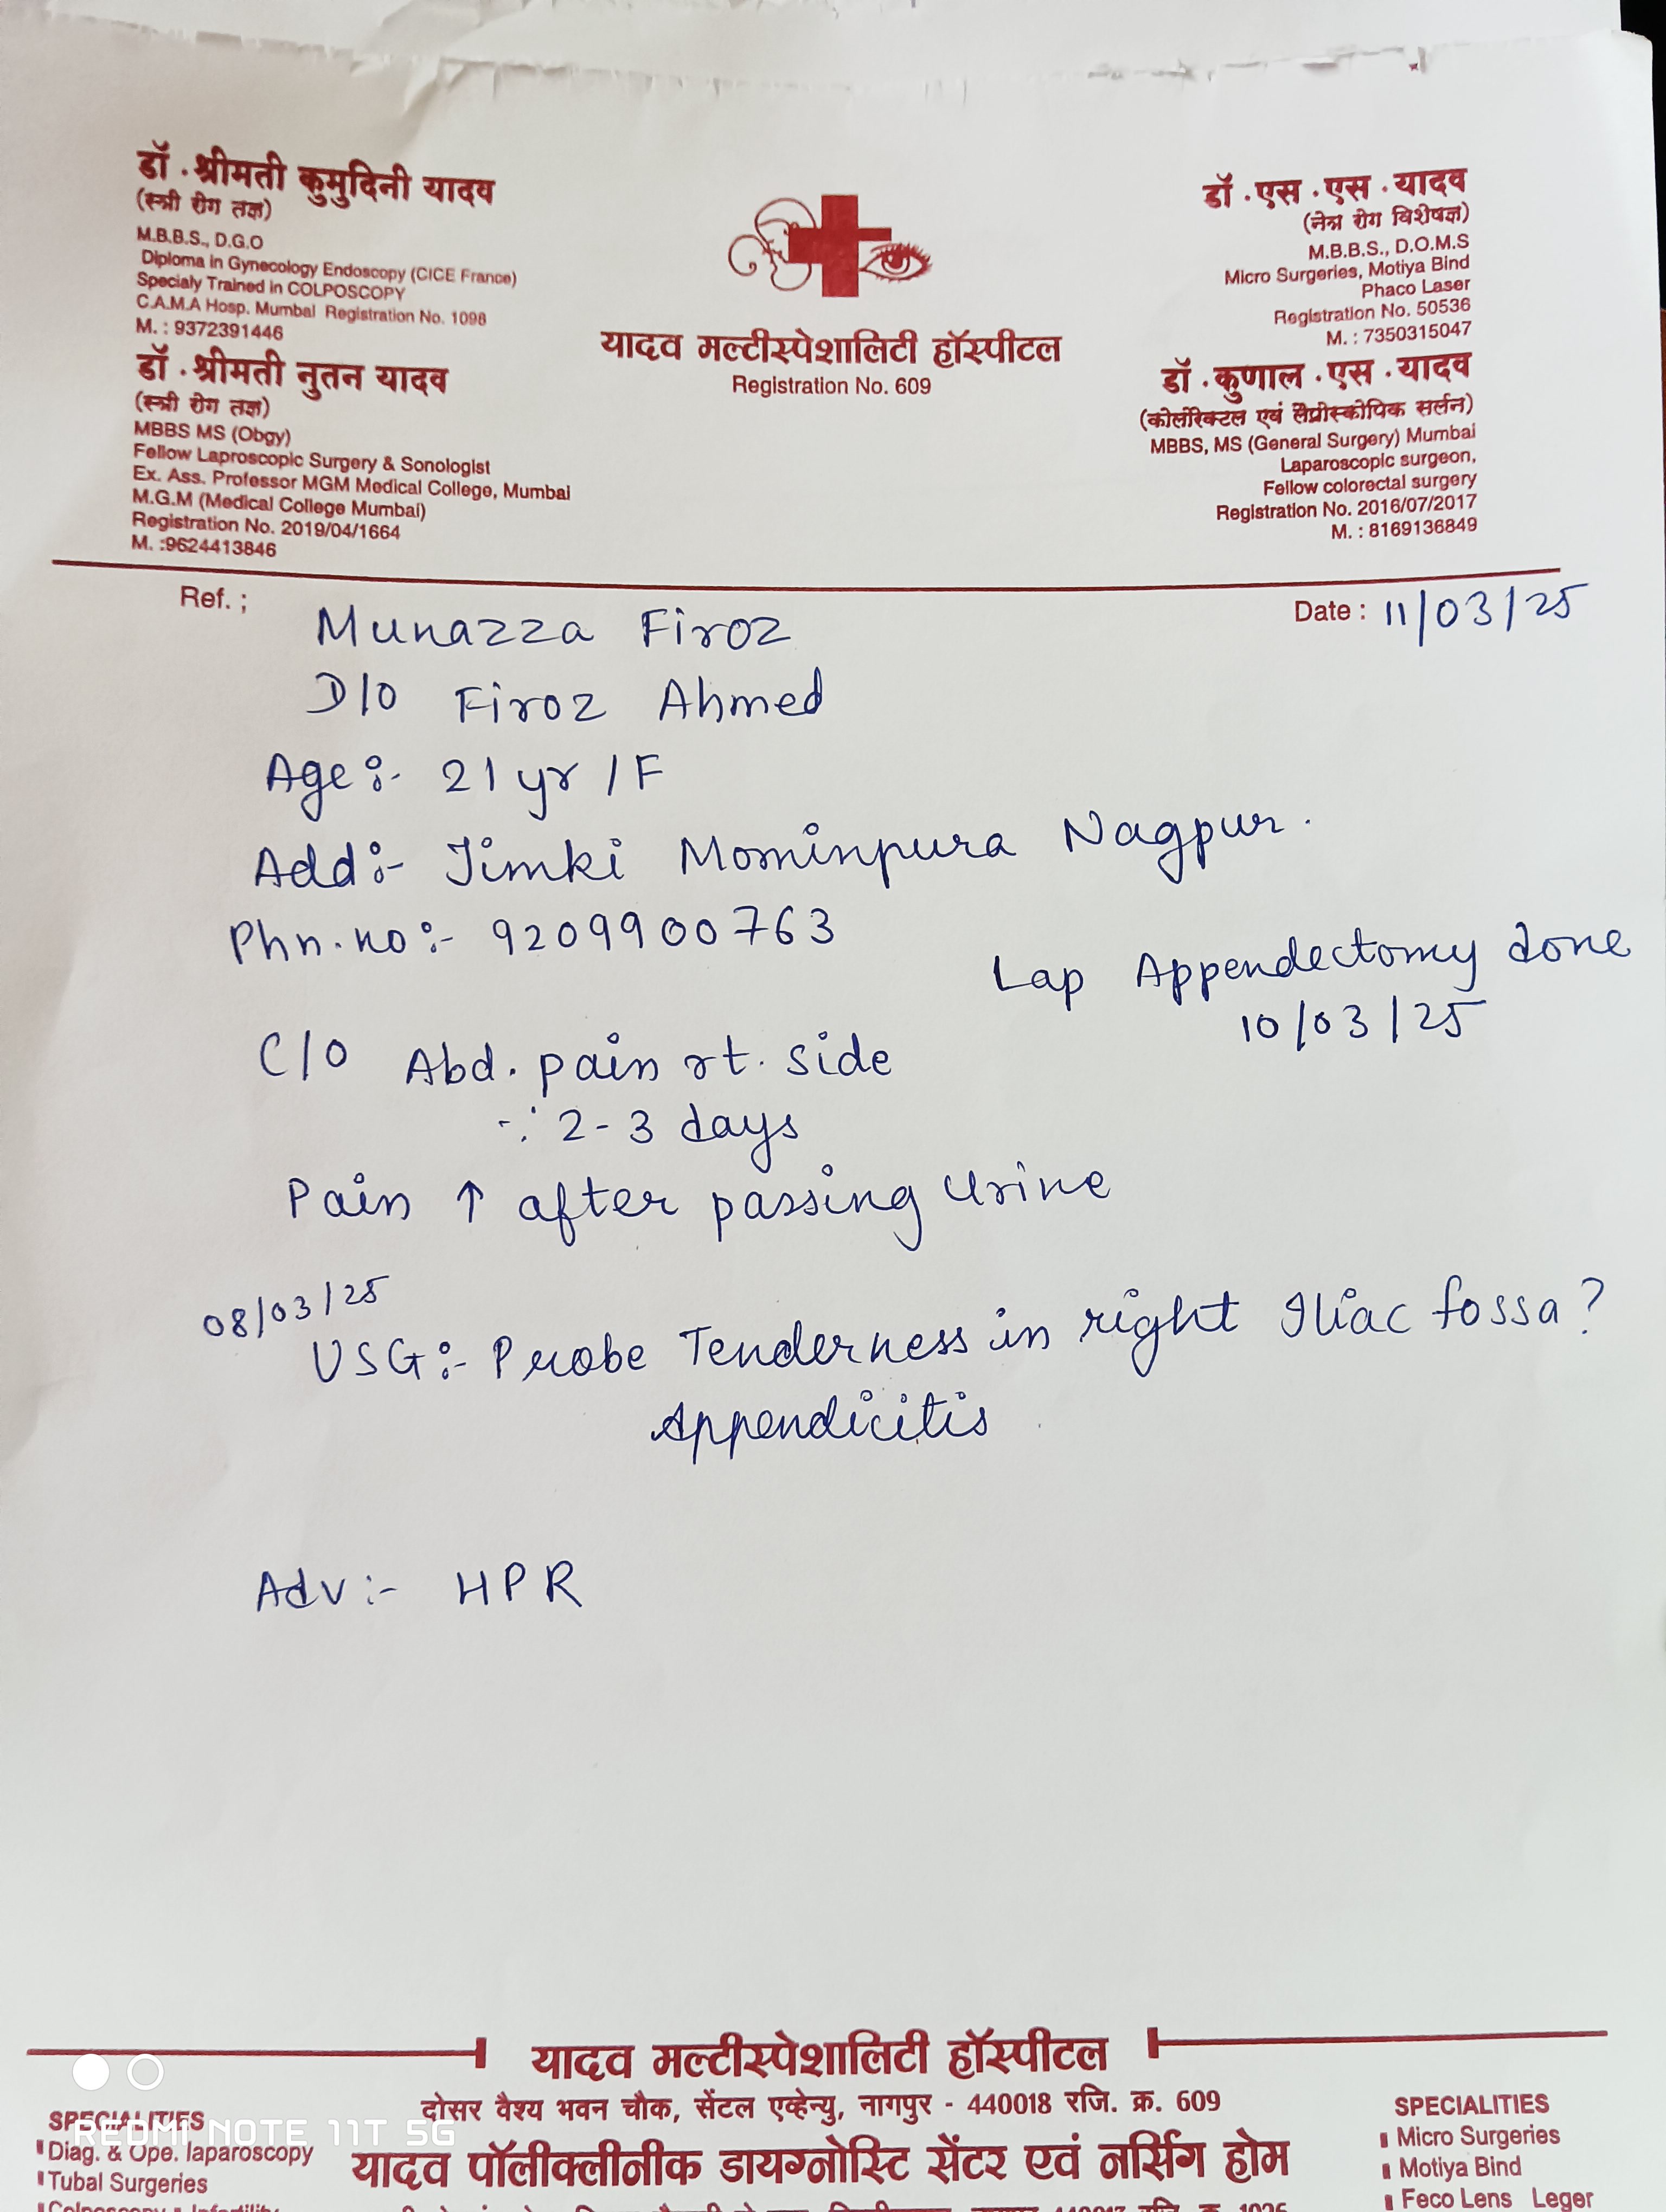 डॉ.श्रीमती कुमुदिनी यादव
(स्त्री रोग तज्ञ)
M.B.B.S., D.G.O
Diploma in Gynecology Endoscopy (CICE France)
Specialy Trained in COLPOSCOPY
C.A.M.A Hosp. Mumbal Registration No. 1098
M. : 9372391446
डॉ.श्रीमती नुतन यादव
(स्त्री रोग तज्ञ)
MBBS MS (Obgy)
Fellow Laproscopic Surgery & Sonologist
Ex. Ass. Professor MGM Medical College, Mumbai
M.G.M (Medical College Mumbai)
Registration No. 2019/04/1664
M. :9624413846
यादव मल्टीस्पेशालिटी हॉस्पीटल
Registration No. 609
डॉ.एस.एस.यादव
(नेत्र रोग विशेषज्ञ)
M.B.B.S., D.O.M.S
Micro Surgeries, Motiya Bind
Phaco Laser
Registration No. 50536
M. : 7350315047
डॉ.कुणाल.एस.यादव
(कोलोरेक्टल एवं लॅप्रोस्कोपिक सर्लन)
MBBS, MS (General Surgery) Mumbai
Laparoscopic surgeon,
Fellow colorectal surgery
Registration No. 2016/07/2017
M. : 8169136849
Ref. ;
Date : 11/03/25
Munazza Firoz
D/O Firoz Ahmed
Age:- 21 yr / F
Add:- Jimki Mominpura Nagpur.
Phn.no:- 9209900763
Lap Appendectomy done
10/03/25
C/O Abd. pain rt. side
∵ 2-3 days
Pain ↑ after passing Urine
08/03/25
USG:- Probe Tenderness in right Iliac fossa?
Appendicitis
Adv:- HPR
यादव मल्टीस्पेशालिटी हॉस्पीटल
दोसर वैश्य भवन चौक, सेंटल एव्हेन्यु, नागपुर - 440018 रजि. क्र. 609
यादव पॉलीक्लीनीक डायग्नोस्टि सेंटर एवं नर्सिग होम
SPECIALITIES
Diag. & Ope. laparoscopy
Tubal Surgeries
SPECIALITIES
Micro Surgeries
Motiya Bind
Feco Lens Leger
REDMI NOTE 11T 5G